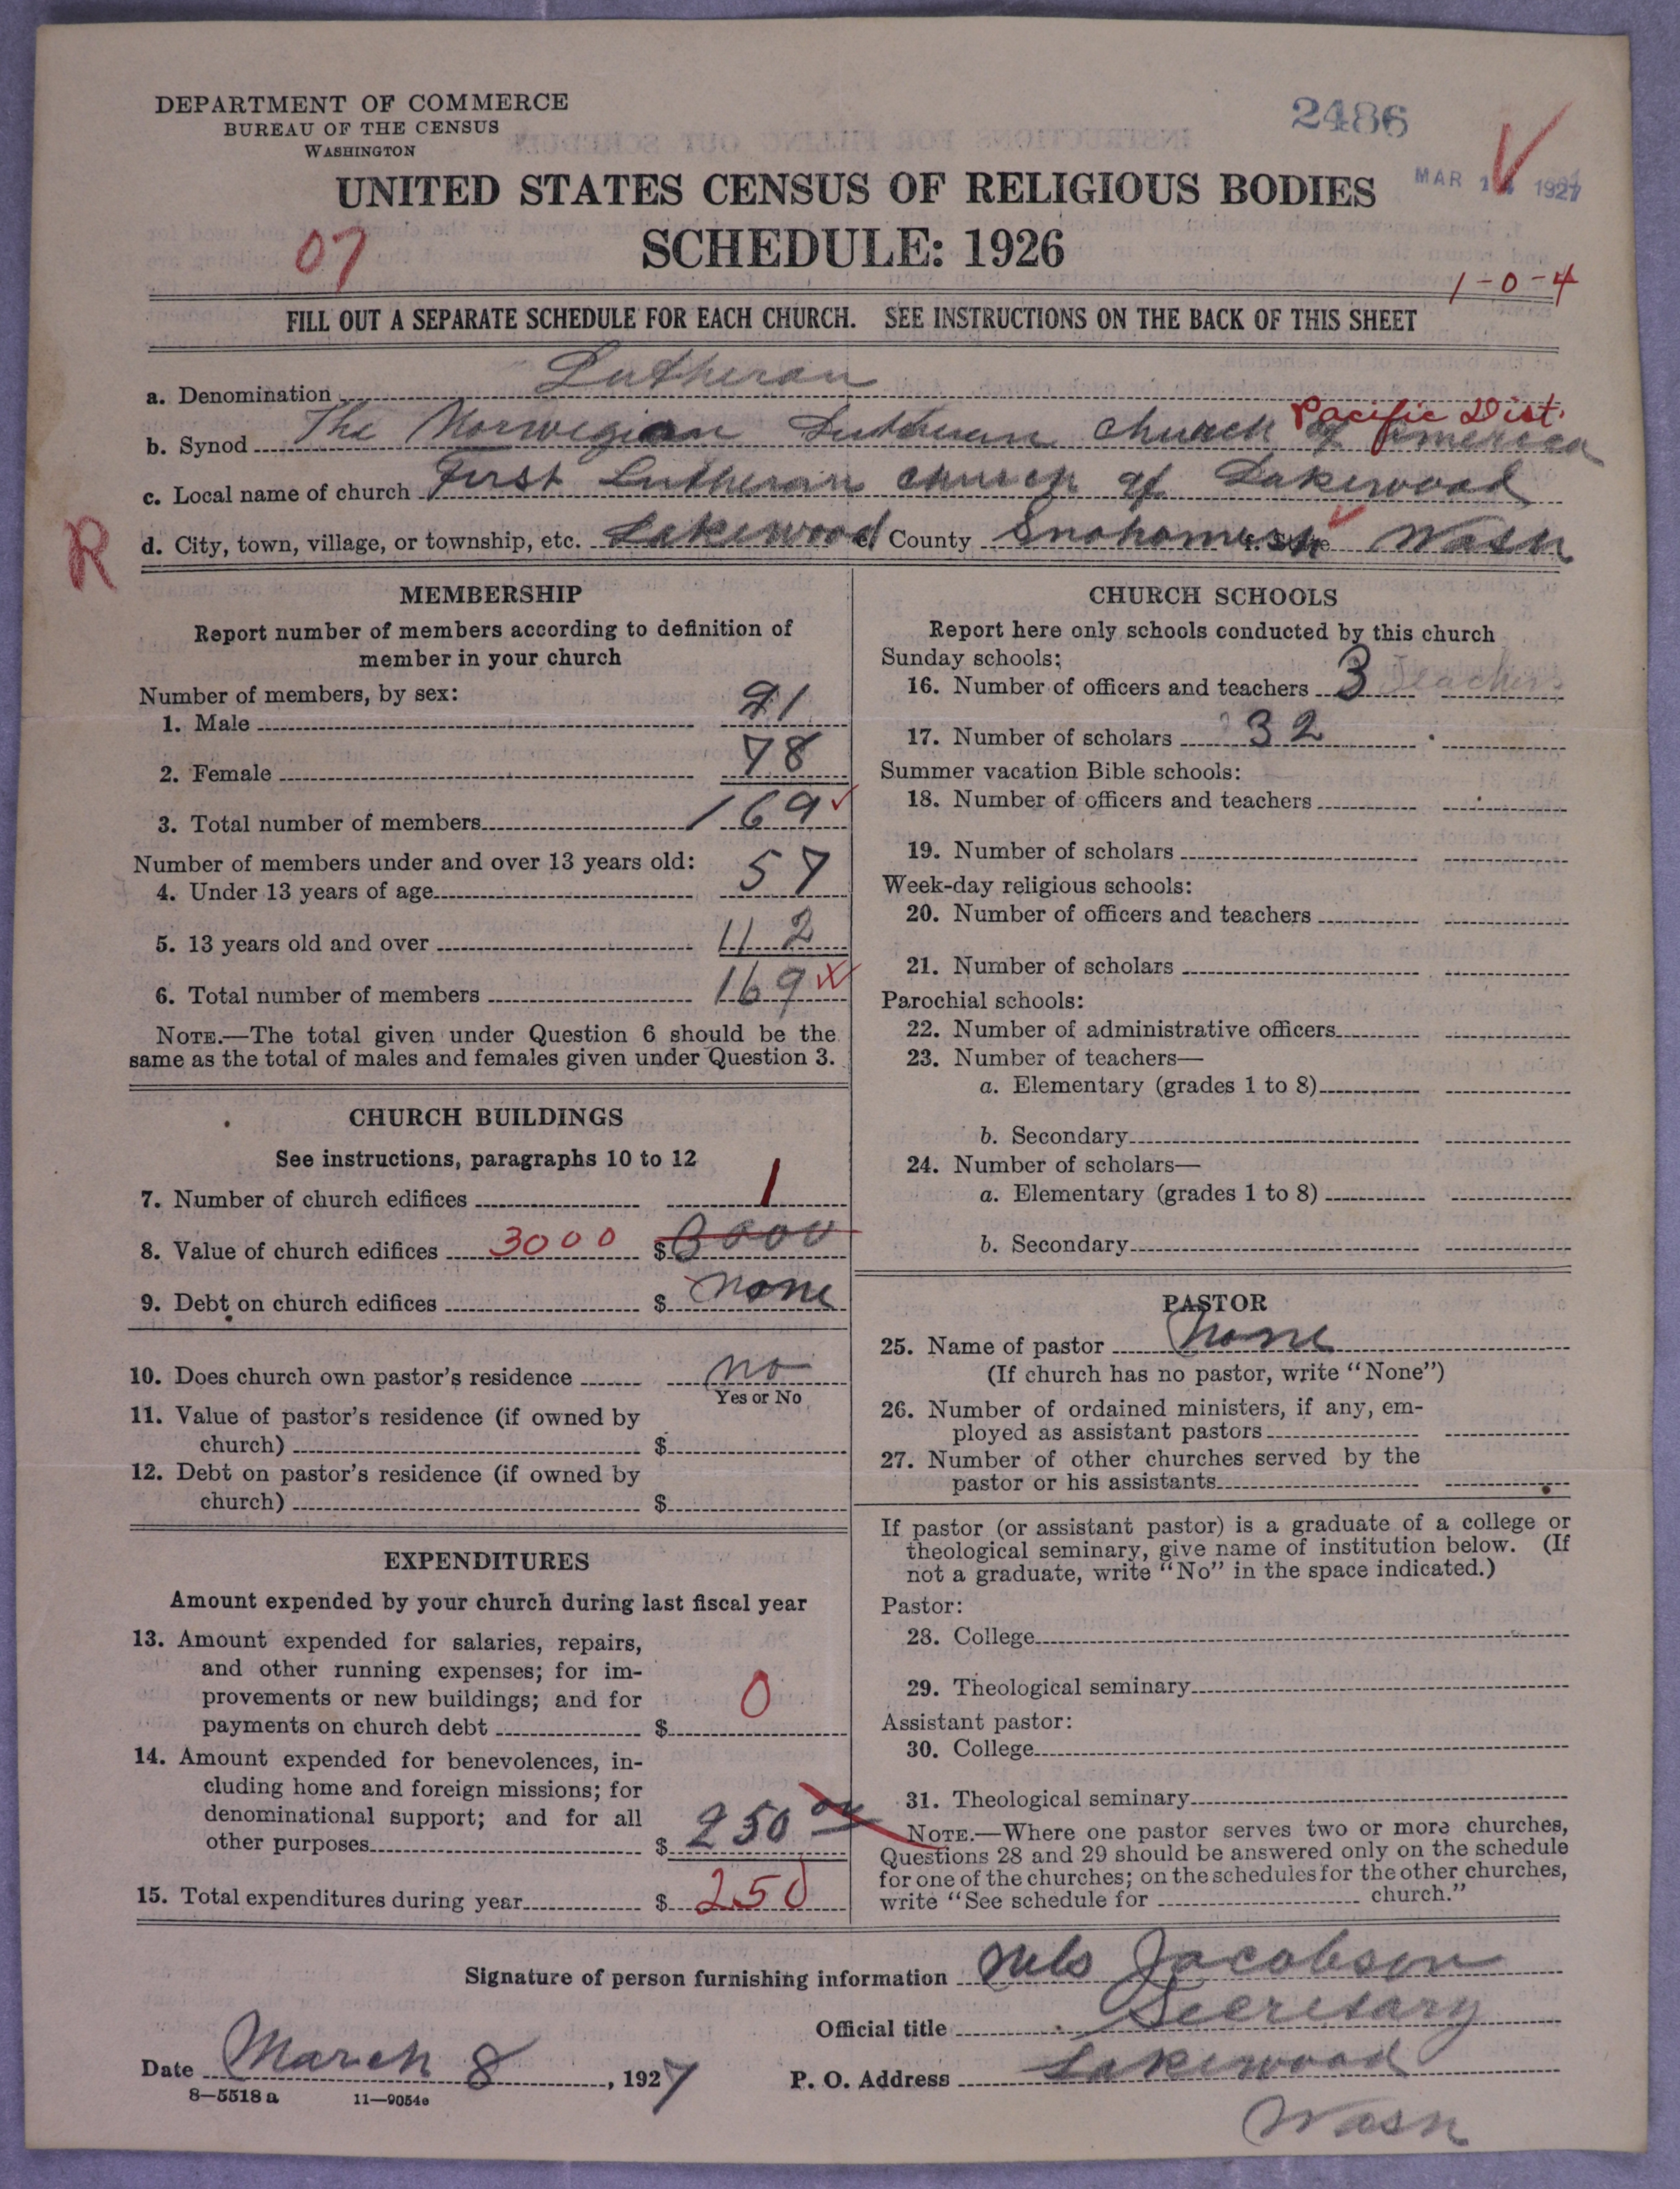 DEPARTMENT OF COMMERCE
BUREAU OF THE CENSUS
WASHINGTON
2486
MAR 1927
UNITED STATES CENSUS OF RELIGIOUS BODIES
07
SCHEDULE: 1926
1-0-4
FILL OUT A SEPARATE SCHEDULE FOR EACH CHURCH. SEE INSTRUCTIONS ON THE BACK OF THIS SHEET
a. Denomination Lutheran
Pacific Dist.
b. Synod The Norwegian Lutheran church of America
c. Local name of church First Lutheran church of Lakewood
R
d. City, town, village, or township, etc. Lakewood County Snohomish Wash
MEMBERSHIP
Report number of members according to definition of
member in your church
Number of members, by sex:
1. Male 91
2. Female 78
3. Total number of members 169
Number of members under and over 13 years old:
4. Under 13 years of age 57
5. 13 years old and over 112
6. Total number of members 169
NOTE.—The total given under Question 6 should be the
same as the total of males and females given under Question 3.
CHURCH BUILDINGS
See instructions, paragraphs 10 to 12
7. Number of church edifices 1
8. Value of church edifices 3000 $ 3000
9. Debt on church edifices $ None
10. Does church own pastor's residence no
Yes or No
11. Value of pastor's residence (if owned by
church) $
12. Debt on pastor's residence (if owned by
church) $
EXPENDITURES
Amount expended by your church during last fiscal year
13. Amount expended for salaries, repairs,
and other running expenses; for im-
provements or new buildings; and for
payments on church debt $ 0
14. Amount expended for benevolences, in-
cluding home and foreign missions; for
denominational support; and for all
other purposes $ 250 00
15. Total expenditures during year $ 250
CHURCH SCHOOLS
Report here only schools conducted by this church
Sunday schools:
16. Number of officers and teachers 3 Teachers
17. Number of scholars 32
Summer vacation Bible schools:
18. Number of officers and teachers
19. Number of scholars
Week-day religious schools:
20. Number of officers and teachers
21. Number of scholars
Parochial schools:
22. Number of administrative officers
23. Number of teachers—
a. Elementary (grades 1 to 8)
b. Secondary
24. Number of scholars—
a. Elementary (grades 1 to 8)
b. Secondary
PASTOR
25. Name of pastor None
(If church has no pastor, write "None")
26. Number of ordained ministers, if any, em-
ployed as assistant pastors
27. Number of other churches served by the
pastor or his assistants
If pastor (or assistant pastor) is a graduate of a college or
theological seminary, give name of institution below. (If
not a graduate, write "No" in the space indicated.)
Pastor:
28. College
29. Theological seminary
Assistant pastor:
30. College
31. Theological seminary
NOTE.—Where one pastor serves two or more churches,
Questions 28 and 29 should be answered only on the schedule
for one of the churches; on the schedules for the other churches,
write "See schedule for church."
Signature of person furnishing information Nels Jacobsen
Official title Secretary
Date March 8, 1927 P. O. Address Lakewood
8—5518 a 11—9054a
Wash